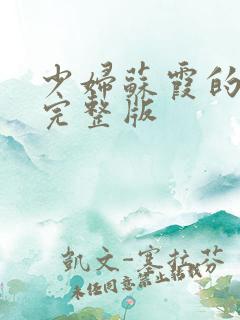 少婦蘇霞的
完整版
凱文-塞拉芬
未经同意禁止转载